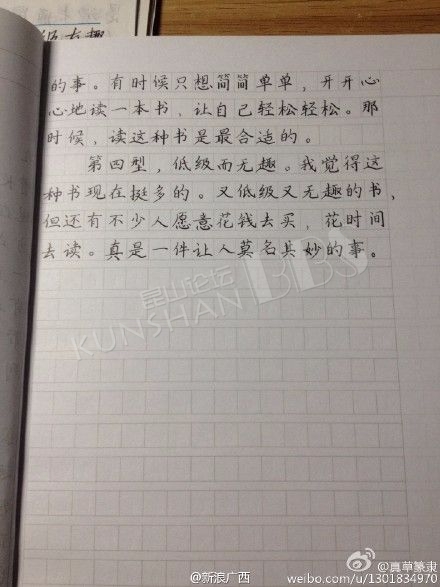 级有趣
的事。有时候只想简简单单，开开心
心地读一本书，让自己轻松轻松。那
时候，读这种书是最合造的。
第四型，低级而无趣。我觉得这
种书现在挺多的。又低级又无趣的书，
但还有不少人愿意花钱去买，花时间
去读。真是一件让人莫名其妙的事。
昆山论坛
KUNSHAN BBS
@新浪广西
@真草篆隶
weibo.com/u/1301834970